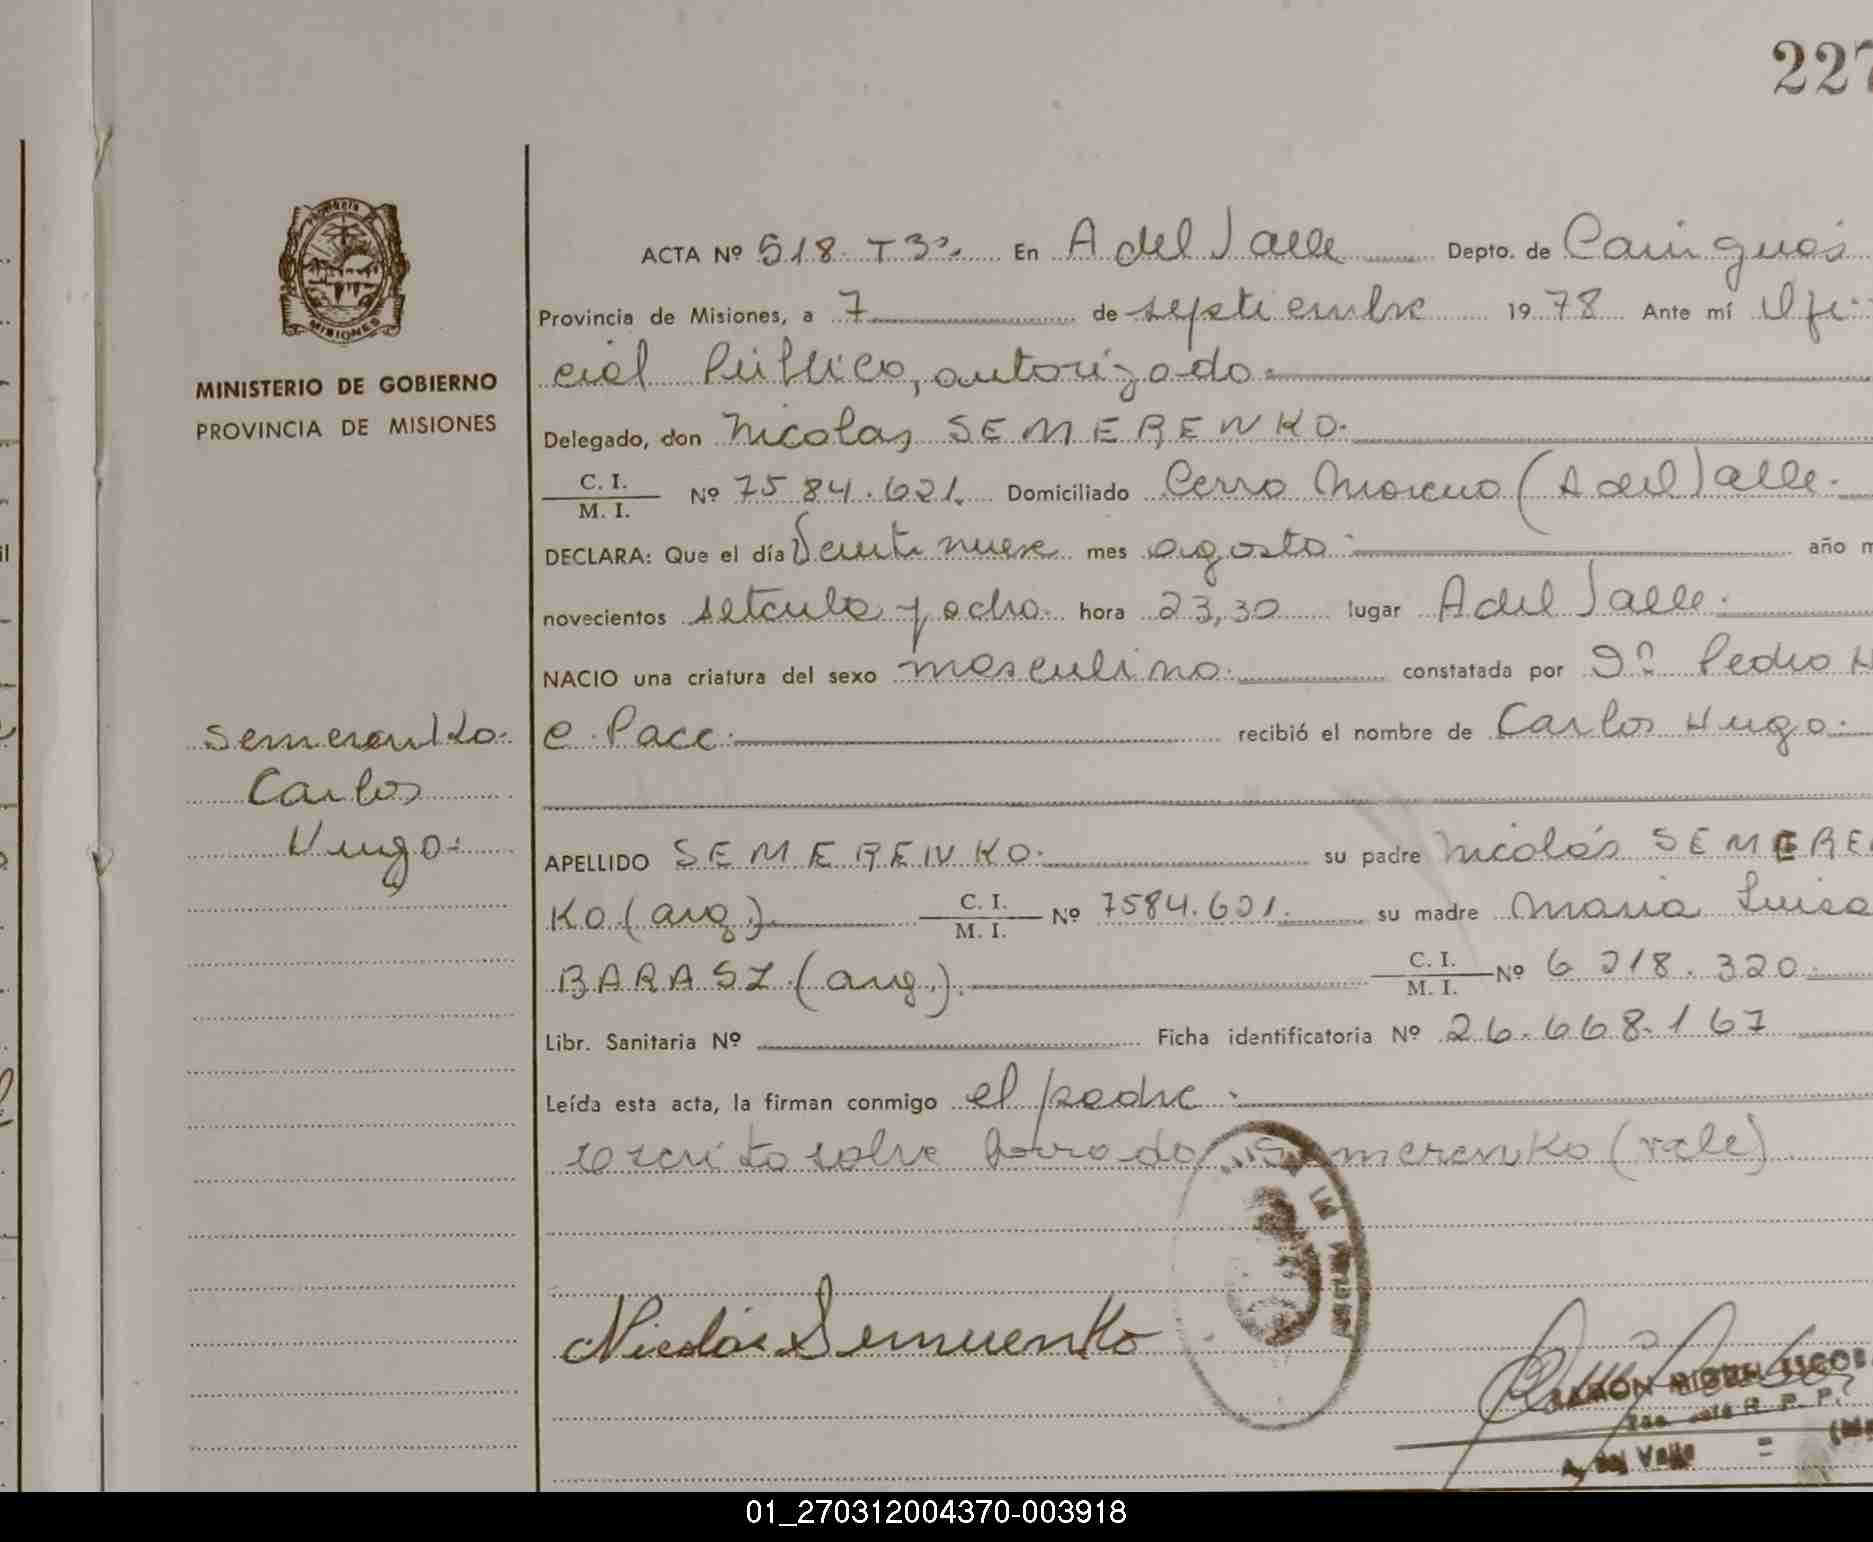 227
PROVINCIA
MISIONES
MINISTERIO DE GOBIERNO
PROVINCIA DE MISIONES
Semerenko.
Carlos
Hugo.
ACTA Nº 518 T 3º. En A del Valle Depto. de Cainguás
Provincia de Misiones, a 7 de septiembre 1978 Ante mí Ofi-
cial Público, autorizado.
Delegado, don Nicolas SEMERENKO.
C. I.
M. I. Nº 7584.621. Domiciliado Cerro Moreno (A del Valle.
DECLARA: Que el día Veinti nueve mes agosto. año m
novecientos setenta y ocho. hora 23,30 lugar A del Valle.
NACIO una criatura del sexo masculino. constatada por Dn Pedro H
e Pace. recibió el nombre de Carlos Hugo.
APELLIDO SEMERENKO. su padre Nicolás SEMERE
KO (arg.) C. I. M. I. Nº 7584.621. su madre Maria Luisa
BARASZ (arg.). C. I. M. I. Nº 6 218.320.
Libr. Sanitaria Nº Ficha identificatoria Nº 26.668.167
Leída esta acta, la firman conmigo el padre.
escrito sobre borrado Semerenko (vale)
Nicolás Semerenko
RAMON
R. P. P.
A. del Valle = (M
01_270312004370-003918